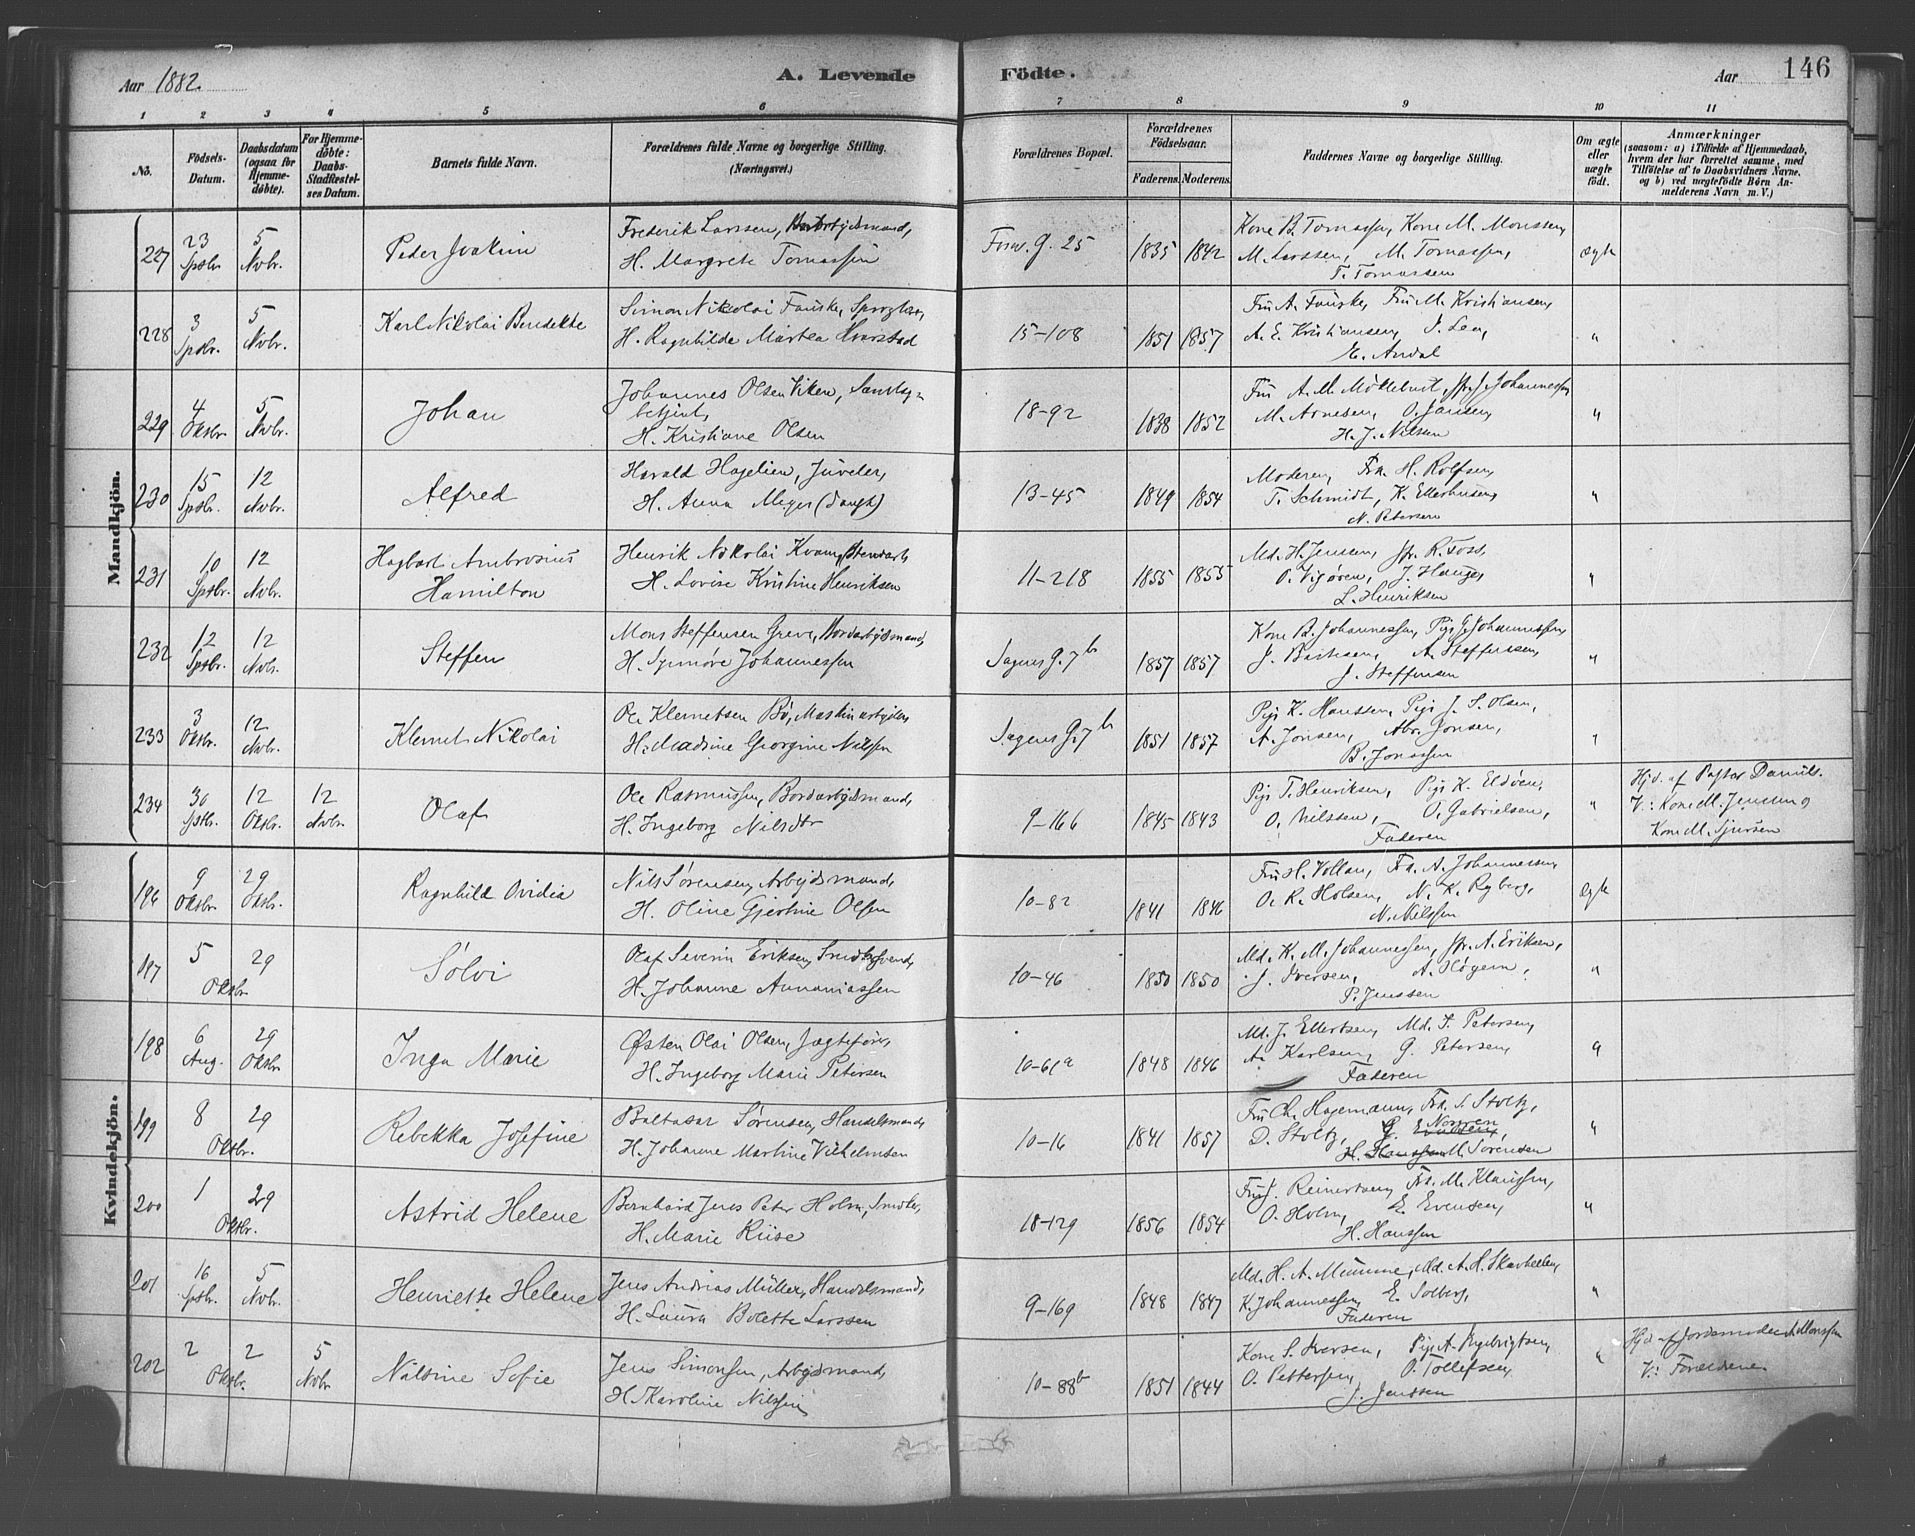 Aar 1882.
A. Levende Födte.
Aar
146
1 2 3 4 5 6 7 8 9 10 11
No.
Födsels-Datum.
Daabsdatum (ogsaa for Hjemme-döbte).
For Hjemme-döbte: Daabs-Stadfæstel-ses Datum.
Barnets fulde Navn.
Forældrenes fulde Navne og borgerlige Stilling. (Næringsvei.)
Forældrenes Bopæl.
Forældrenes Födselsaar.
Faderens. Moderens.
Faddernes Navne og borgerlige Stilling.
Om ægte eller uægte födt.
Anmærkninger
(saasom: a) i Tilfælde af Hjemmedaab, hvem der har forrettet samme, med Tilföielse af to Daabsvidners Navne, og b) ved uægtefödte Börn An-melderens Navn m. V.)
Mandkjön.
227 23 Sptbr. 5 Nvbr. Peder Joakim
Frederik Larssen, arbeidsmand,
H. Margrete Tomassen
25 1835 1842
Kone B. Tomassen, Kone M. Monssen,
M. Larssen, M. Tomassen,
T. Tomassen
ægte
228 3 Sptbr. 5 Nvbr. Karl Nikolai Benedikte
Simon Nikolai Fauske,
H. Ragnhilde Martea Hvarstad
15-108 1851 1857
Fru A. Fauske, Fru M. Kristiansen,
A. E. Kristiansen, J. Lea,
E. Andal
"
229 4 Oktbr. 5 Nvbr. Johan
Johannes Olsen Viken,
betjent,
H. Kristiane Olsen
18-92 1838 1852
Fru A. M. Möllebust, Johannessen
M. Arnesen, O. Jansen,
H. J. Nilsen
"
230 15 Sptbr. 12 Nvbr. Alfred
Harald Hagelien, Juveler,
H. Anna Meyer
13-45 1849 1854
Moderen, Frk. H. Rolfsen,
T. Schmidt, K. Ellerhusen,
N. Petersen
"
231 10 Sptbr. 12 Nvbr. Hagbart Ambrosius
Hamilton
Henrik Nikolai Kvam, Stenarb.
H. Lovise Kristine Henriksen
11-218 1855 1855
Md. H. Jensen, R. Foss,
O. Vigören, J. Hauge,
L. Henriksen
"
232 12 Sptbr. 12 Nvbr. Steffen
Mons Steffensen Greve, Bordarbeidsmand,
H. Synnöve Johannessen
7b 1857 1857
Kone B. Johannessen, Pige G. Johannessen,
A. Steffensen,
J. Steffensen
"
233 3 Oktbr. 12 Nvbr. Klemet Nikolai
Ole Klemetsen Bö, Maskinarbeider,
H. Madsine Georgine Nilsen
7b 1851 1857
Pige K. Hanssen, Pige J. S. Olsen,
A. Jonsen, Abr. Jonsen,
B. Jonassen
"
234 30 Sptbr. 12 Oktbr. 12 Nvbr. Olaf
Ole Rasmussen, Bordarbeidsmand,
H. Ingeborg Nilsdtr
9-166 1845 1843
Pige T. Henriksen, Pige K. Eldöen,
O. Nilssen, O. Gabrielsen,
Faderen
"
Hjd. af Pastor Daniels.
V: Kone M. Jensen og
Kone M. Sjursen
Kvindekjön.
196 9 Oktbr. 29 Oktbr. Ragnhilde Ovidia
Nils Sörensen, Arbeidsmand,
H. Oline Gjertine Olsen
10-82 1841 1846
Fru H. Vollan, Frk. A. Johannessen,
O. R. Holsen, N. K. Ryberg,
N. Nilssen
Ægte
197 5 29 Oktbr. Sölvi
Olaf Severin Eriksen, Smedsvend,
H. Johanne Annaniassen
10-46 1850 1850
Md. K. M. Johannessen, A. Eriksen,
J. Iversen,
P. Jenssen
"
198 6 Aug. 29 Oktbr. Inga Marie
Østen Olai Olsen, Jægtefører,
H. Ingeborg Marie Petersen
10-61a 1848 1846
Md. J. Ellertsen, Md. S. Petersen,
A. Karlsen, G. Petersen,
Faderen
"
199 8 29 Oktbr. Rebekka Josefine
Baltasar Sörensen, Handelsmand,
H. Johanne Martine Vilhelmsen
10-16 1841 1857
Fru Ch. Hagemann, Frk. S. Stoltz,
D. Stoltz, G.
H. Hanssen M. Sörensen
"
200 1 29 Oktbr. Astrid Helene
Bernhard Jens Peter Holm,
H. Marie Riise
18-129 1856 1854
Fru J. Reinertsen, Frk. M. Klaussen,
O. Holm, E. Evensen,
H. Hanssen
"
201 16 Sptbr. 5 Nvbr. Henriette Helene
Jens Andreas Müller, Handelsmand,
H. Laura Bolette Larssen
9-169 1848 1847
Md. H. A. Mumme, Md. A. H. Skarhellen,
K. Johannessen, E. Solberg,
Faderen
"
202 2 2 Oktbr. 5 Nvbr. Nilsine Sofie
Jens Simonsen, Arbeidsmand,
H. Karoline Nilssen
10-88b 1851 1844
Kone S. Iversen, Pige A. Engebrigtsen,
O. Pettersen, O. Tollefsen,
J. Jenssen
"
Hjd. af Jordemoder A. Monssen
V: Forældrene